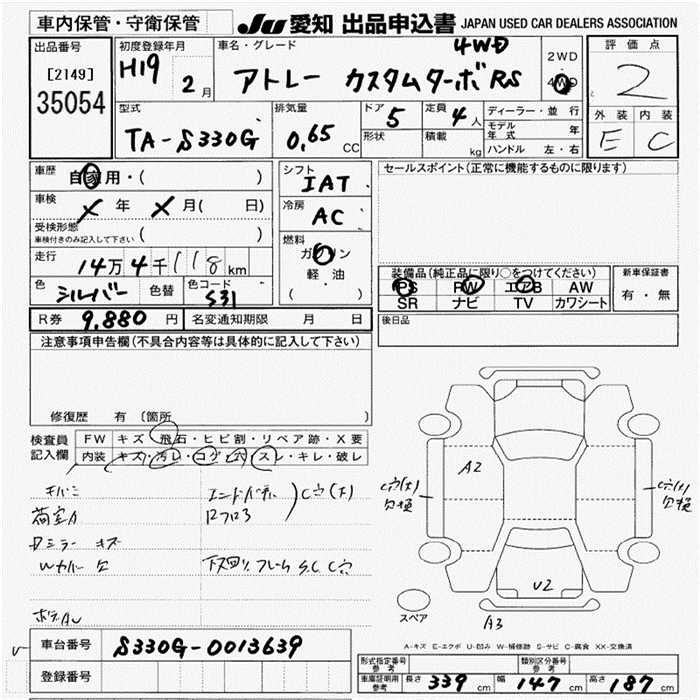 車内保管・守衛保管 JU 愛知 出品申込書 JAPAN USED CAR DEALERS ASSOCIATION
出品番号 [2149] 35054
初度登録年月 H19 年 2月
車名・グレード アトレー カスタムターボRS 4WD
2WD 4WD
評価点 2
外装 E 内装 C
型式 TA-S330G
排気量 0.65 CC
ドア 5 定員 4人
形状 積載 kg
ディーラー・並行
モデル年式 年
ハンドル 左・右
車歴 自家用・( )
車検 × 年 × 月( 日)
受検形態 車検付きのみ記入して下さい ( )
走行 14万4千118km
色 シルバー 色替 色コード S31
シフト IAT
冷房 AC
燃料 ガソリン 軽油 ( )
セールスポイント(正常に機能するものに限ります)
装備品(純正品に限り○をつけてください)
PS PW エアB AW
SR ナビ TV カワシート
新車保証書 有・無
後日品
R券 9,880 円 名変通知期限 月 日
注意事項申告欄(不具合内容等は具体的に記入して下さい)
修復歴 有 (箇所 )
検査員記入欄
FW キズ・飛石・ヒビ割・リペア跡・X要
内装 キズ・汚レ・コゲ・穴・スレ・キレ・破レ
荷室A
Dミラー キズ
Wカバー 欠
下回り フレーム S.C C穴
C穴(大)
A2
U2
A3
欠損
スペア
A-キズ E-エクボ U-凹み W-補修跡 S-サビ C-腐食 XX-交換済
車台番号 S330G-0013639
登録番号
形式指定番号 参考 類別区分番号 参考
車庫証明用 参考 長さ 339cm 幅 147cm 高さ 187cm